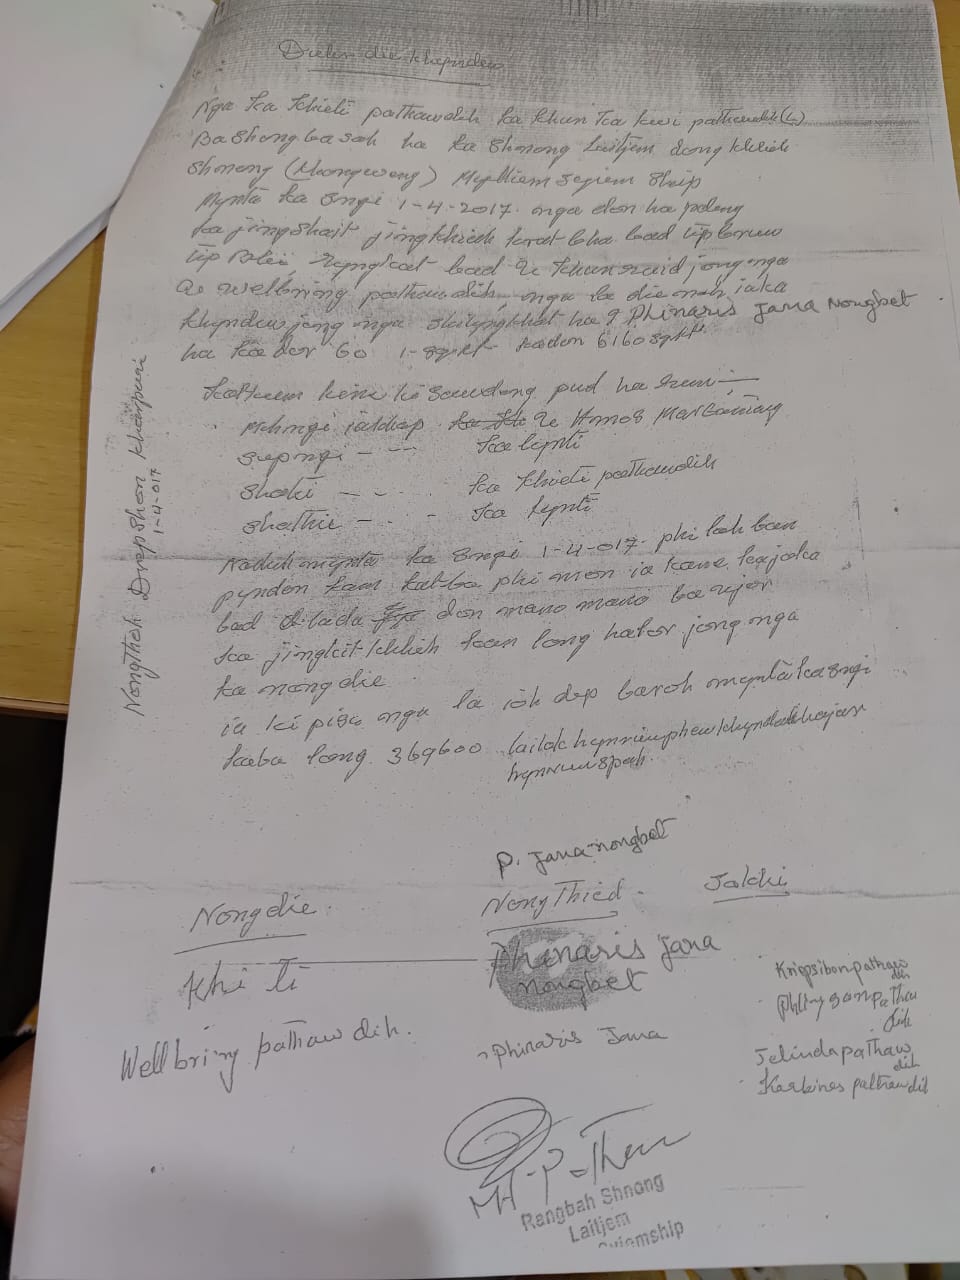 Dulir die khyndew
Nga Ka Khieti pathawdih ka khun Ka kwi pathawdih (L)
Ba shong ba sah ha ka Shnong Laitjem dong khlieh
Shnong (Mawngweng) Mylliem Syiem Ship
Mynta ka Sngi 1-4-2017. nga don ha pdeng
ka jingshait jingkhiah kwat bha bad tip briew
tip Blei, ryngkat bad U khun jong nga
U wellbring pathawdih nga la die noh jaka
khyndew jong nga shilyngkhat ha I Phinaris Jana Nongbet
ha ka dor 60 1-sqft kadon 6160 sqft.
Katkum kine ki sawdong pud ha trum:—
Mihngi jaitdap U Amos Marbaniang
sepngi - - - Ka lynti
Shathi - - . . Ka Khieti pathawdih
shathie - . . - Ka lynti
Naduh mynta ka Sngi 1-4-017. phi lah ban
pyndon kam katba phi mon ia kane ka jaka
bad lada don mano mano ba ujor
ka jingkit khlieh kan long halor jong nga
ka nongdie.
ia ki pisa nga la ioh dep baroh mynta ka sngi
kaba long 369600 lailak hynriewphew khyndai hajar
hynriew spah.
Nongthoh Drapshon kharpuri
1-4-017
P. Jana-nongbet
Nongdie. NongThied. Sakhi
Khi ti Phinaris Jana
Nongbet
Wellbring pathaw dih.
Phinaris Jana
Kriopsibon pathaw
dih
Phlingson paThaw
dih
Jelinda pathaw
dih
Karbines pathawdih
MH-P-Thew
Rangbah Shnong
Laitjem